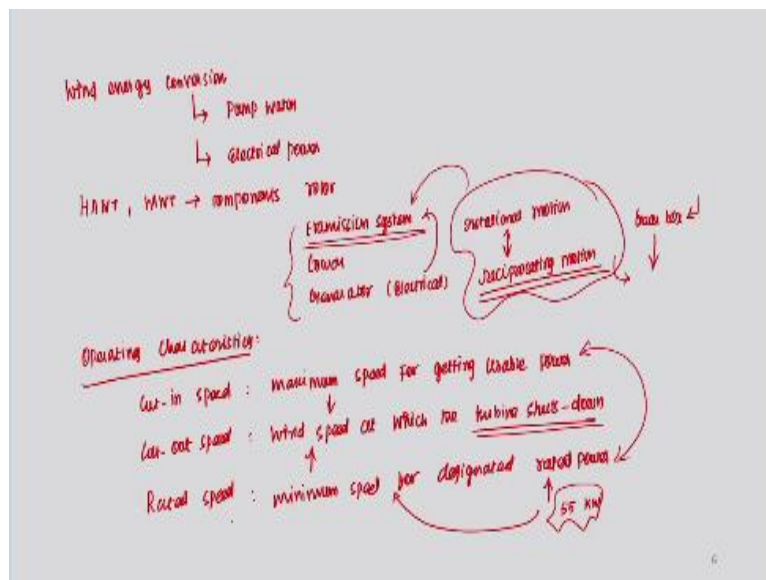 Wind energy conversion
↳ Pump water
↳ electrical power
HAWT, VAWT → components rotor
Transmission system
tower
Generator (Electrical)
rotational motion
reciprocating motion
Gear box
Operating Characteristics:
Cut-in speed : maximum speed for getting usable power
Cut-out speed : wind speed at which the turbine shuts-down
Rated speed : minimum speed for designated rated power
55 KW
6